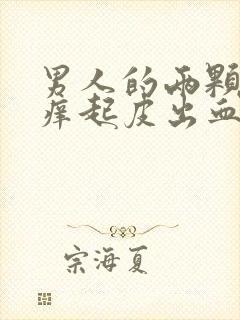 男人的两颗
痒起皮出血
宗海夏